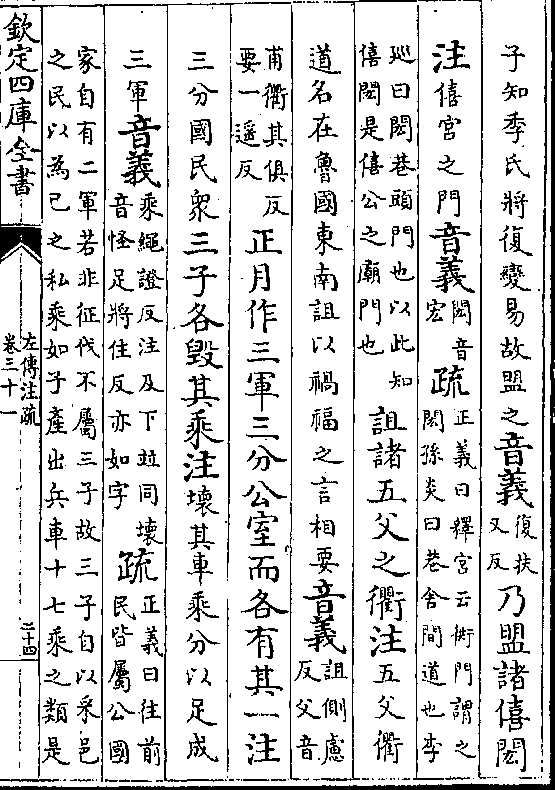 子知季氏將復變易故盟之音義復扶又反乃盟諸僖閎
注僖宮之門音義閎音宏疏正義曰釋宮云衖門謂之閎孫炎曰巷舍間道也李
巡曰閎巷頭門也以此知僖閎是僖公之廟門也詛諸五父之衢注五父衢
道名在魯國東南詛以禍福之言相要音義詛側慮反父音
甫衢其俱反要一遥反正月作三軍三分公室而各有其一注
三分國民衆三子各毀其乘注壞其車乘分以足成
三軍音義乘繩證反注及下竝同壞音怪足將住反亦如字疏正義曰往前民皆屬公國
家自有二軍若非征伐不屬三子故三子自以采邑
之民以為已之私乘如子產出兵車十七乘之類是
欽定四庫全書
左傳注疏
卷三十一
二十四